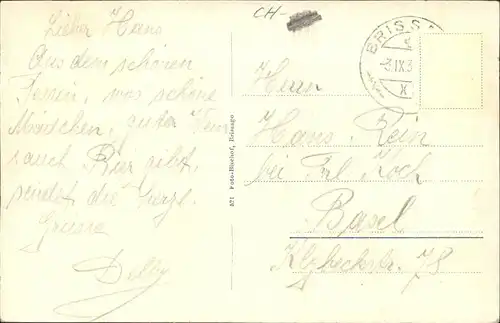 CH-
Lieber Hans
Aus dem schönen
Tessin, wo schöne
Mädchen, guter Wein
auch Bier gibt,
sendet die herzl.
Grüsse
871 Foto-Bischof, Brissago
BRISS
-3.IX.3
X
Herrn
Hans Rein
bei Frl Koch
Basel
78